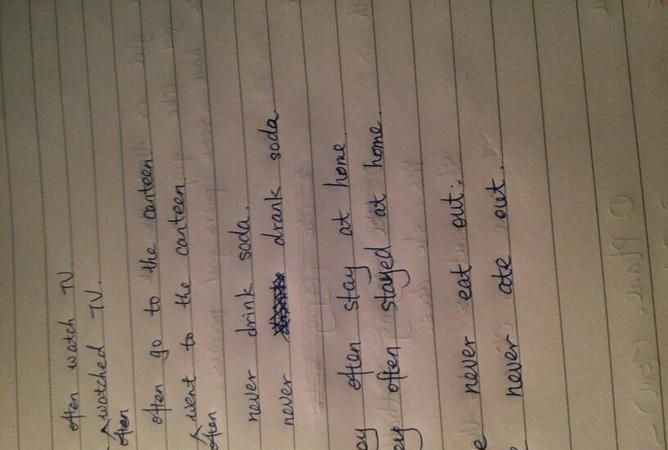 often watch TV.
watched TV.
often
often go to the canteen.
went to the canteen.
often
never drink soda.
never drank soda.
often stay at home.
often stayed at home.
never eat out.
never ate out.